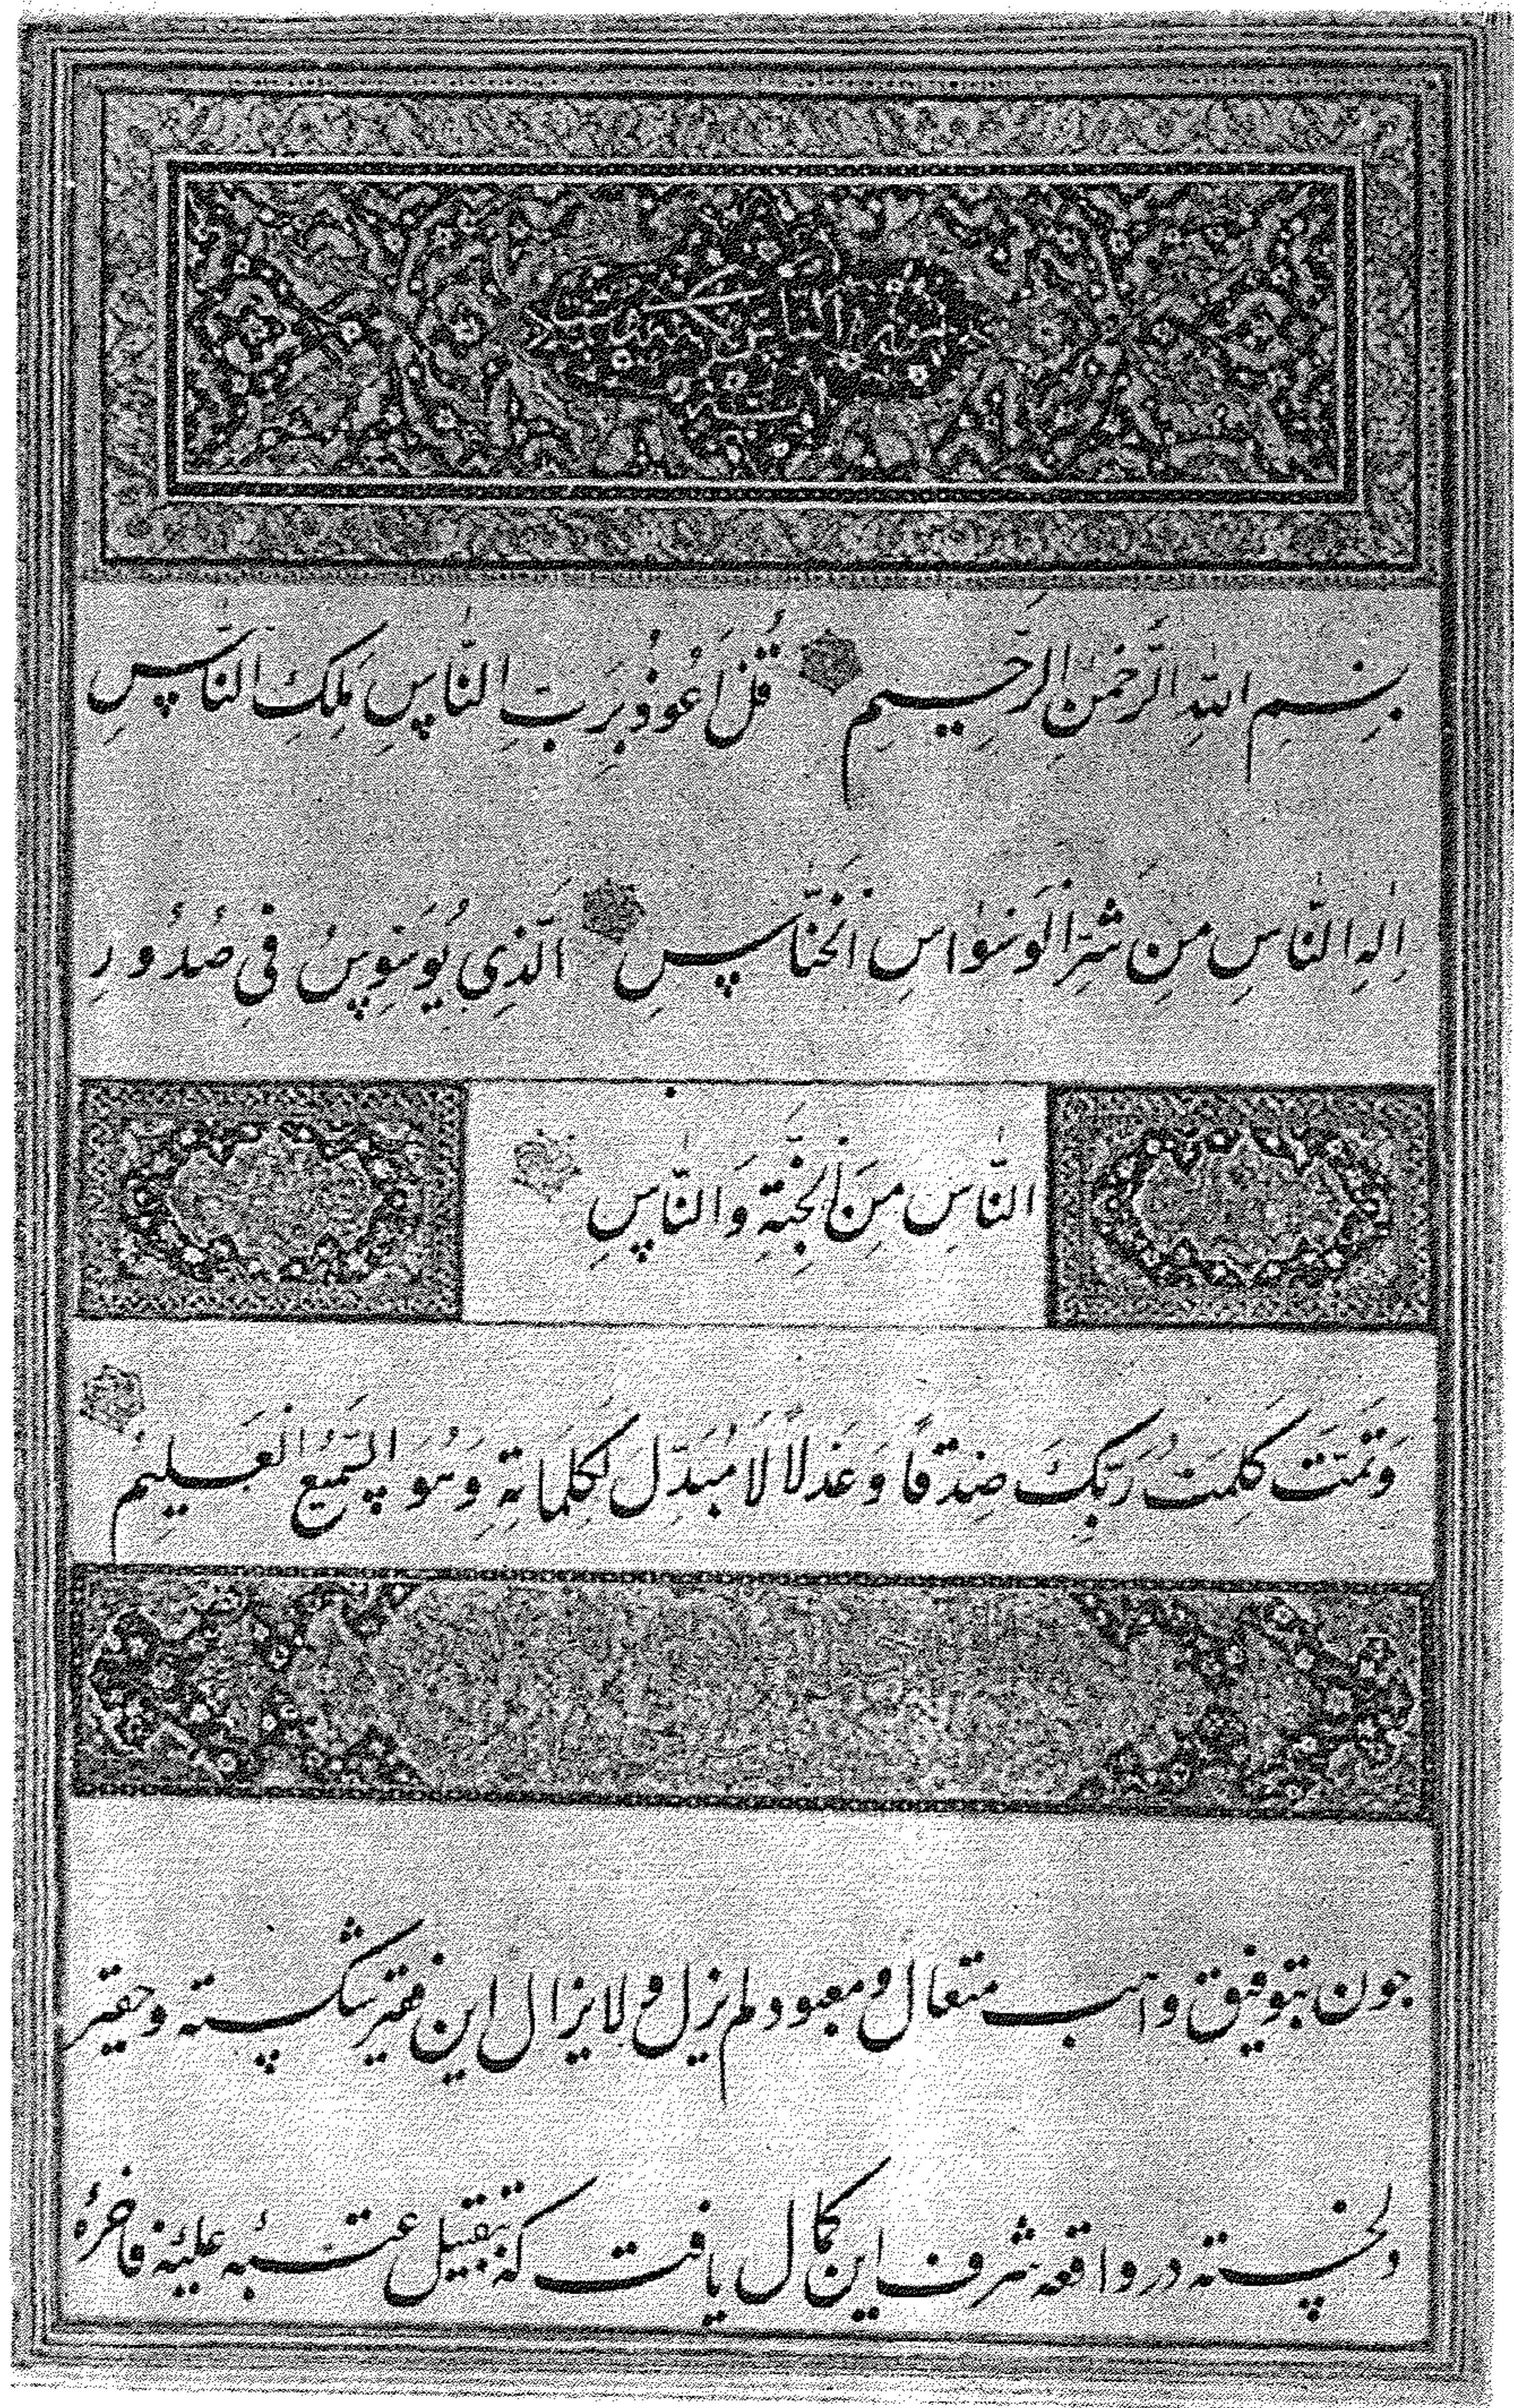 بِسْمِ اللهِ الرَّحْمٰنِ الرَّحِيمِ قُلْ اَعُوذُ بِرَبِّ النَّاسِ مَلِكِ النَّاسِ
اِلٰهِ النَّاسِ مِنْ شَرِّ الْوَسْوَاسِ الْخَنَّاسِ اَلَّذِي يُوَسْوِسُ فِي صُدُورِ
النَّاسِ مِنَ الْجِنَّةِ وَالنَّاسِ
وَتَمَّتْ كَلِمَتُ رَبِّكَ صِدْقًا وَعَدْلًا لَا مُبَدِّلَ لِكَلِمَاتِهِ وَهُوَ السَّمِيعُ الْعَلِيمُ
چون بتوفیق واهب متعال و معبود لم یزل و لا یزال این فقیر شکسته و حقیر
دلخسته در واقعه شرف این کمال یافت که بتقبیل عتبهٔ علیهٔ فاخرهٔ